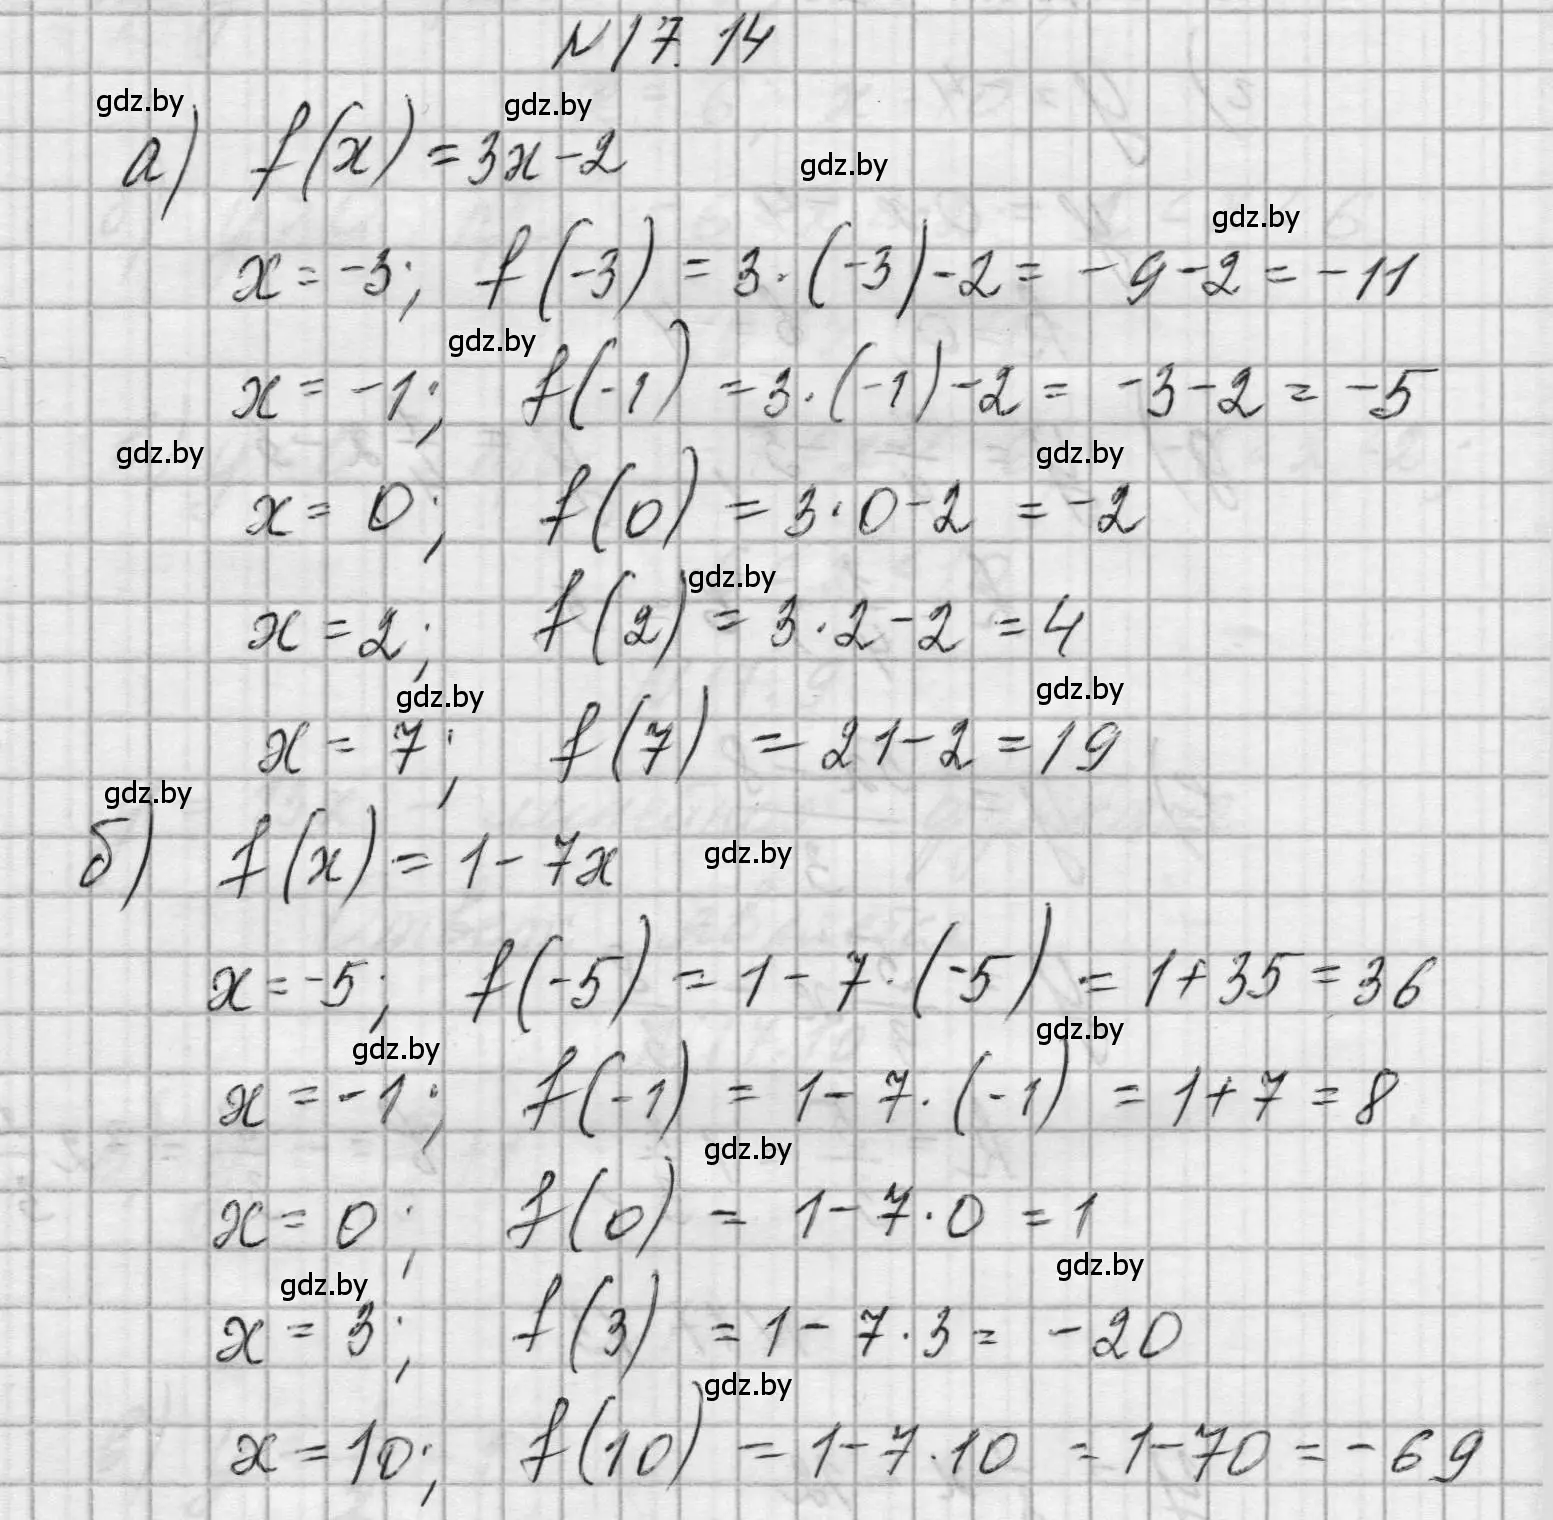 N17.14
gdz.by
gdz.by
а) f(x) = 3x - 2
gdz.by
gdz.by
x = -3; f(-3) = 3·(-3) - 2 = -9 - 2 = -11
gdz.by
x = -1; f(-1) = 3·(-1) - 2 = -3 - 2 = -5
gdz.by
gdz.by
x = 0; f(0) = 3·0 - 2 = -2
gdz.by
x = 2; f(2) = 3·2 - 2 = 4
gdz.by
gdz.by
x = 7; f(7) = 21 - 2 = 19
gdz.by
б) f(x) = 1 - 7x
gdz.by
x = -5; f(-5) = 1 - 7·(-5) = 1 + 35 = 36
gdz.by
gdz.by
x = -1; f(-1) = 1 - 7·(-1) = 1 + 7 = 8
gdz.by
x = 0; f(0) = 1 - 7·0 = 1
gdz.by
gdz.by
x = 3; f(3) = 1 - 7·3 = -20
gdz.by
x = 10; f(10) = 1 - 7·10 = 1 - 70 = -69